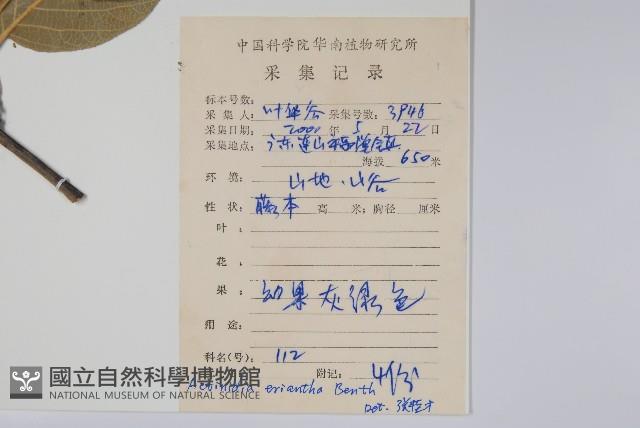 中国科学院华南植物研究所
采集记录
标本号数:
采集人: 叶华谷 采集号数: 3946
采集日期: 2000 年 5 月 22 日
采集地点: 广东连山
海拔 650 米
环境: 山地.山谷
性状: 藤本 高 米; 胸径 厘米
叶:
花:
果: 幼果灰绿色
用途:
科名(号): 112 附记: 4份
Actinidia eriantha Benth
Det.
國立自然科學博物館
NATIONAL MUSEUM OF NATURAL SCIENCE